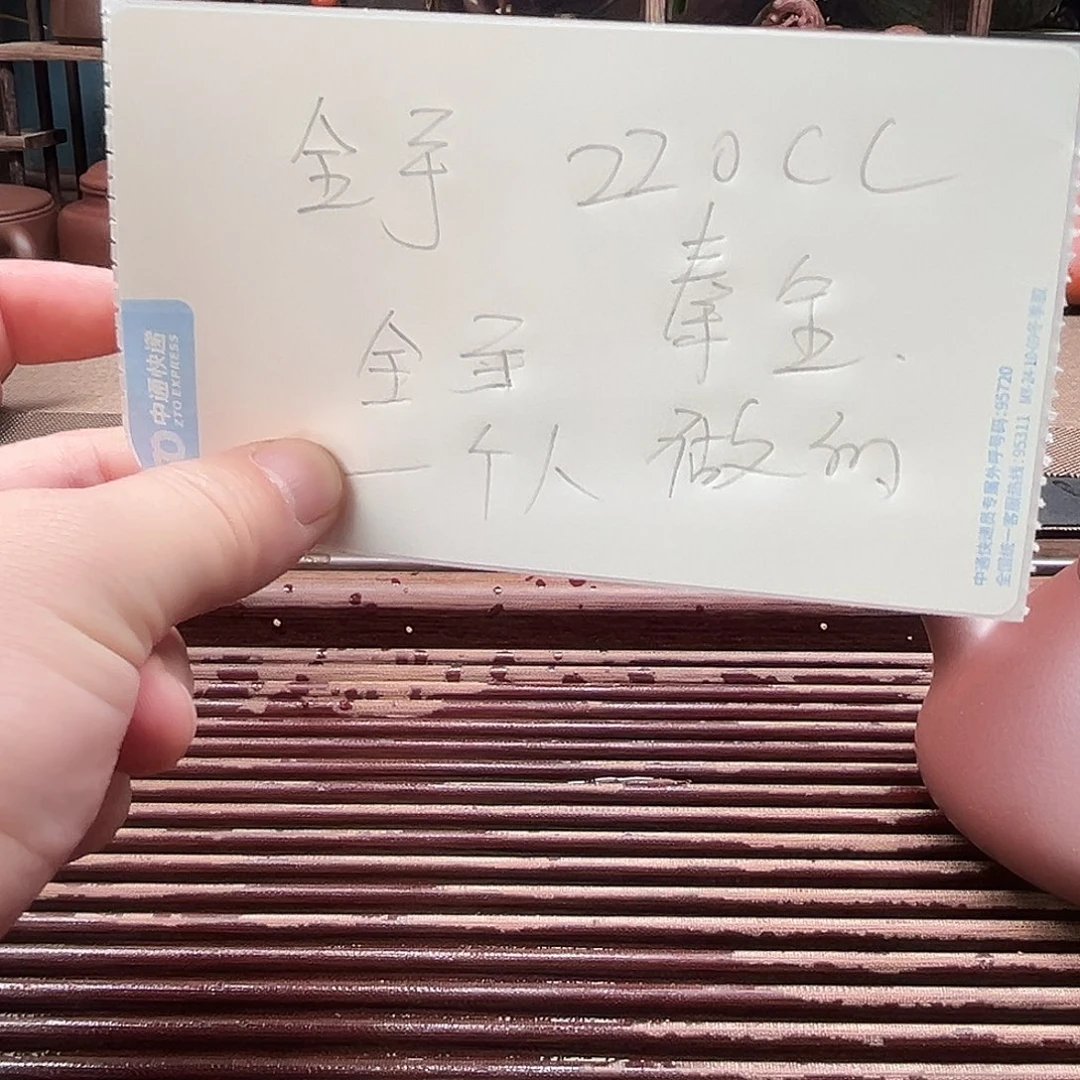 全手 220CC
秦全.
全手
一个人做的
中通快递
ZTO EXPRESS
中通快递员专属外呼号码:95720
全国统一客服热线:95311